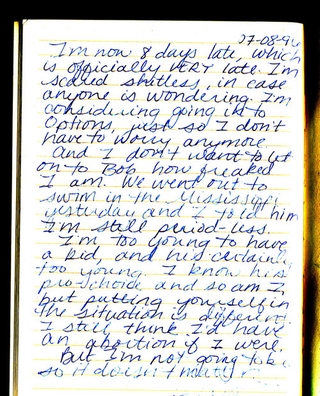 27-08-96
I'm now 8 days late, which
is officially VERY late. I'm
scared shitless, in case
anyone is wondering. I'm
considering going in to
Options, just so I don't
have to worry anymore.
And I don't want to let
on to Bob how freaked
I am. We went out to
swim in the Mississippi
yesterday and I told him
I'm still period-less.
I'm too young to have
a kid, and he's certainly
too young. I know he's
pro-choice and so am I,
but putting yourself in
the situation is different.
I still think I'd have
an abortion if I were.
But I'm not going to be
so it doesn't matter.